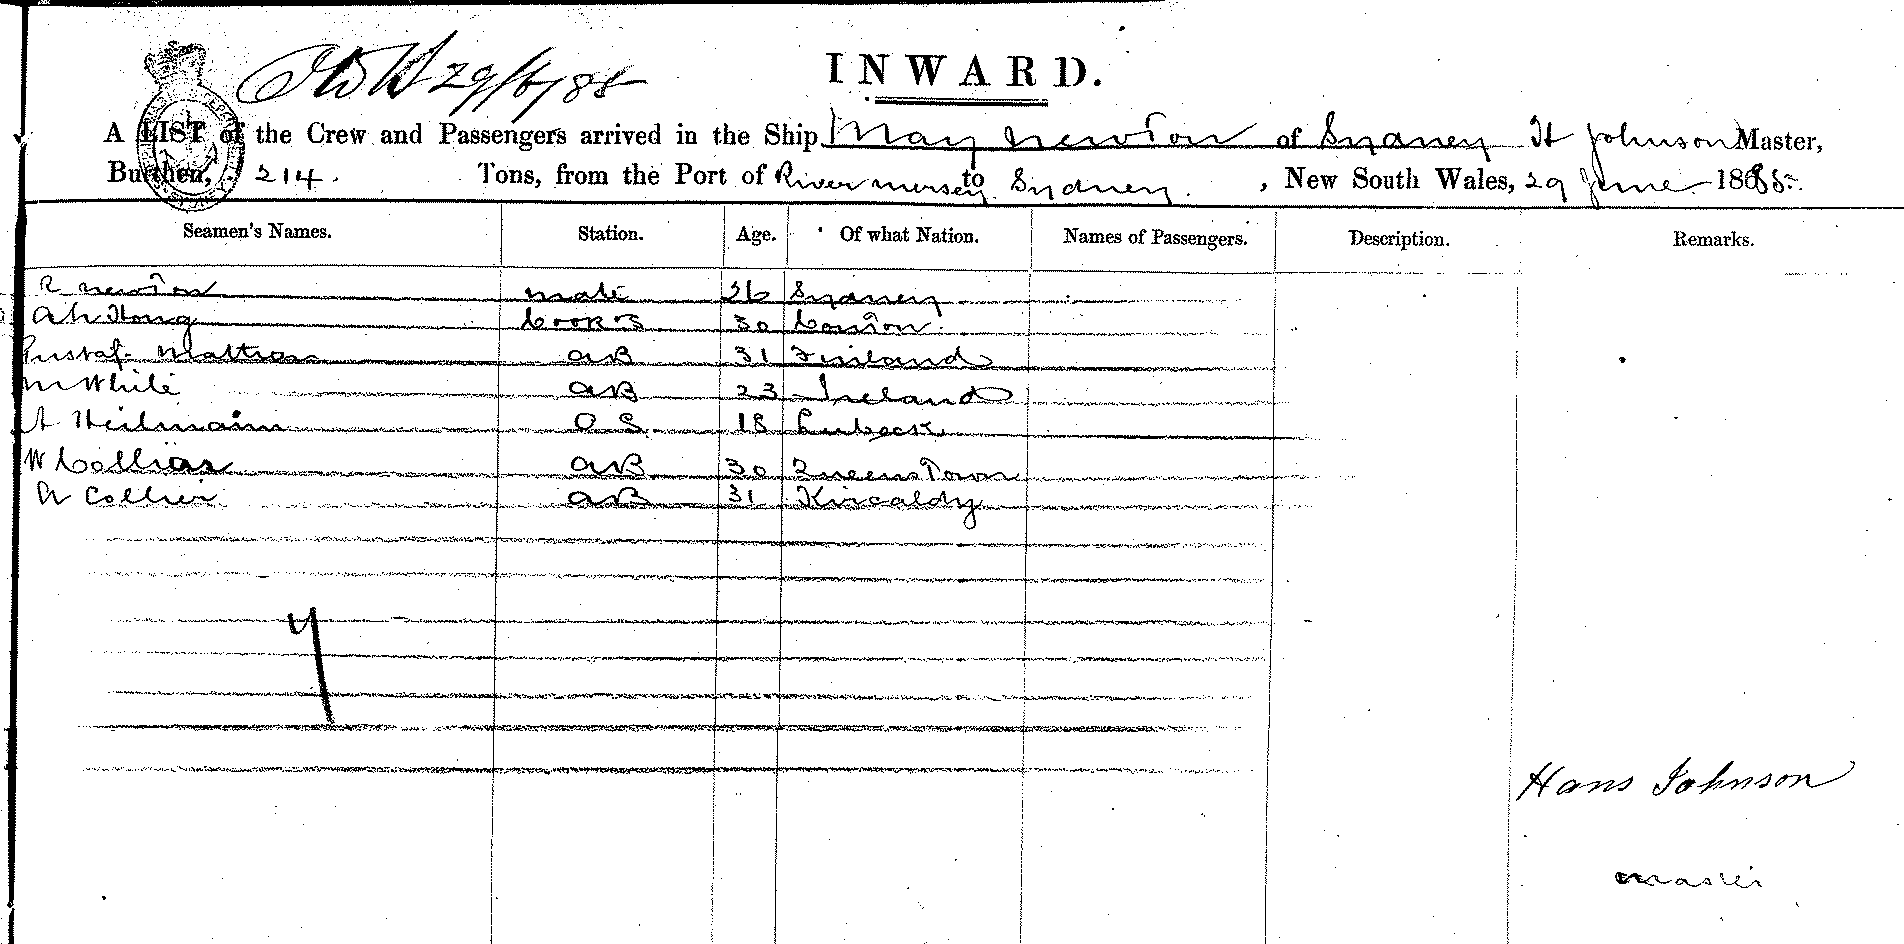 29/6/85
INWARD.
A LIST of the Crew and Passengers arrived in the Ship May Newton of Sydney H Johnson Master,
Burthen, 214. Tons, from the Port of River mersey to Sydney, New South Wales, 29 June 1885.
Seamen's Names. Station. Age. Of what Nation. Names of Passengers. Description. Remarks.
R Newton mate 26 Sydney
Ah Hong Cook & S 30 Canton
Gustaf Mattson AB 31 Finland
M White AB 23 Ireland
A Heilmann O S 18 Lubeck
W Collias AB 30 Queenstown
A Collier AB 31 Kircaldy
7
Hans Johnson
master